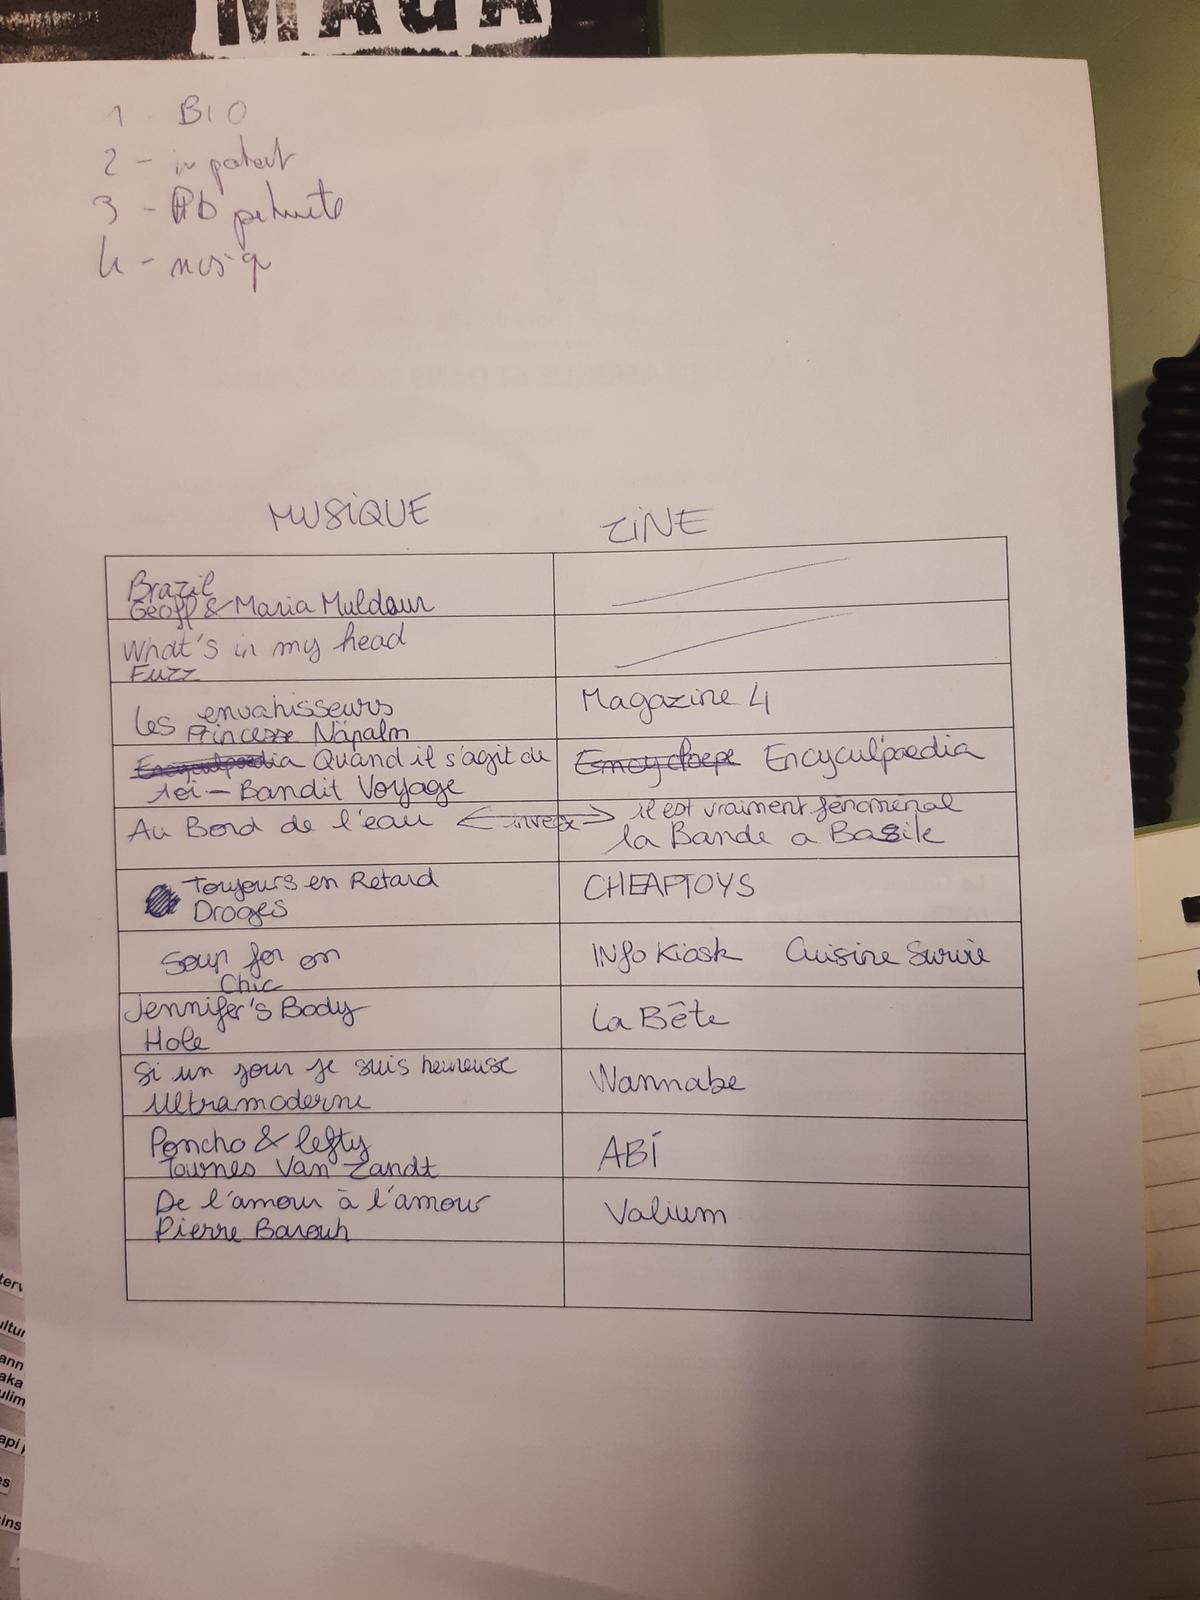 MAGA
1 - BIO
2 -
3 -
4 -
MUSIQUE
ZINE
Brazil
Geoff & Maria Muldaur
What's in my head
Fuzz
Les envahisseurs
Princesse Näpalm
Magazine 4
Quand il s'agit de
toi - Bandit Voyage
Encyculpaedia
Au Bord de l'eau
il est vraiment fénoménal
la Bande a Basile
Toujours en Retard
Droges
CHEAPTOYS
Soup for on
Chic
INfo Kiosk Cuisine Survie
Jennifer's Body
Hole
La Bête
Si un jour je suis heureuse
Ultramoderne
Wannabe
Poncho & lefty
Townes Van Zandt
ABÍ
De l'amour à l'amour
Pierre Barouh
Valium